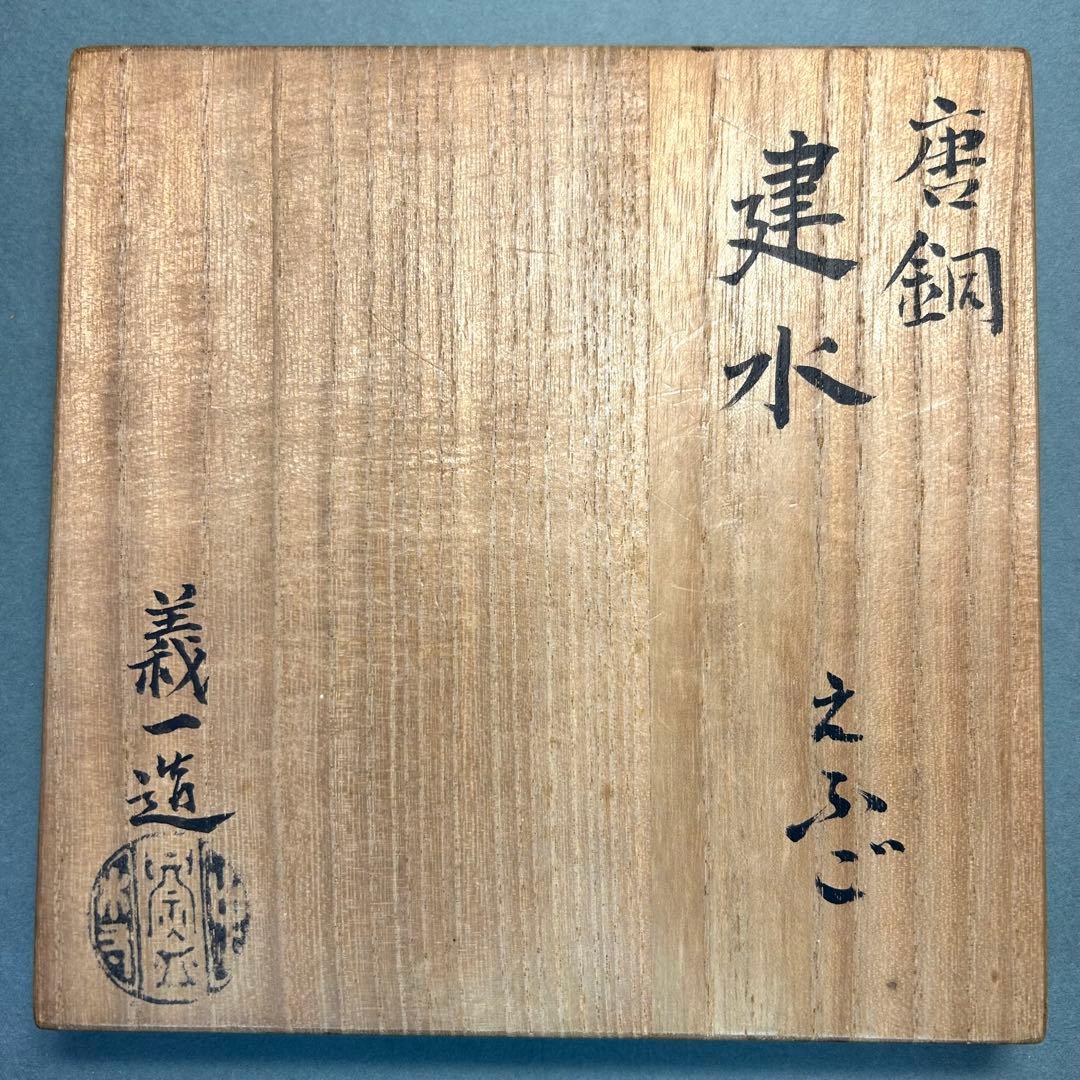 唐銅
建水
えふご
義一造